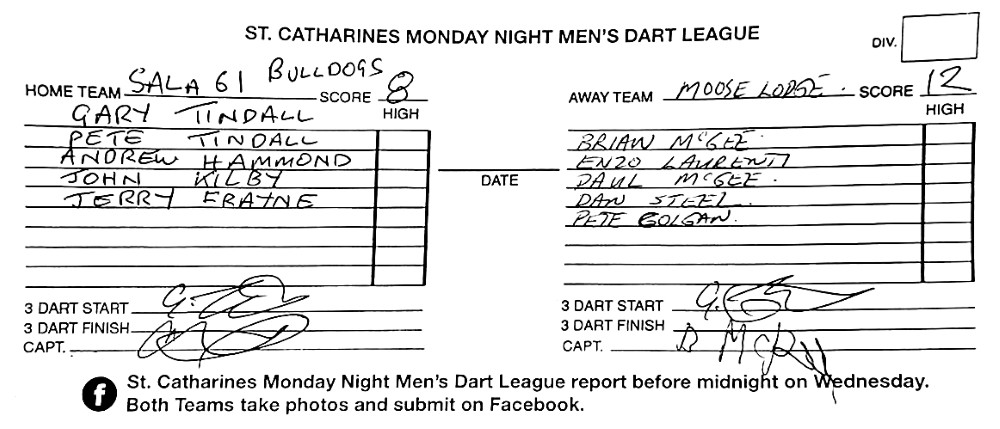 ST. CATHARINES MONDAY NIGHT MEN'S DART LEAGUE
DIV.
HOME TEAM SALA 61 BULLDOGS SCORE 8
HIGH
GARY TINDALL
PETE TINDALL
ANDREW HAMMOND
JOHN KILBY
JERRY FRAYNE
3 DART START
3 DART FINISH
CAPT.
DATE
AWAY TEAM MOOSE LODGE. SCORE 12
HIGH
BRIAN McGEE.
ENZO LAURENTI
PAUL McGEE.
DAN STEEL.
PETE GOLGAN.
3 DART START
3 DART FINISH
CAPT. B
St. Catharines Monday Night Men's Dart League report before midnight on Wednesday.
Both Teams take photos and submit on Facebook.